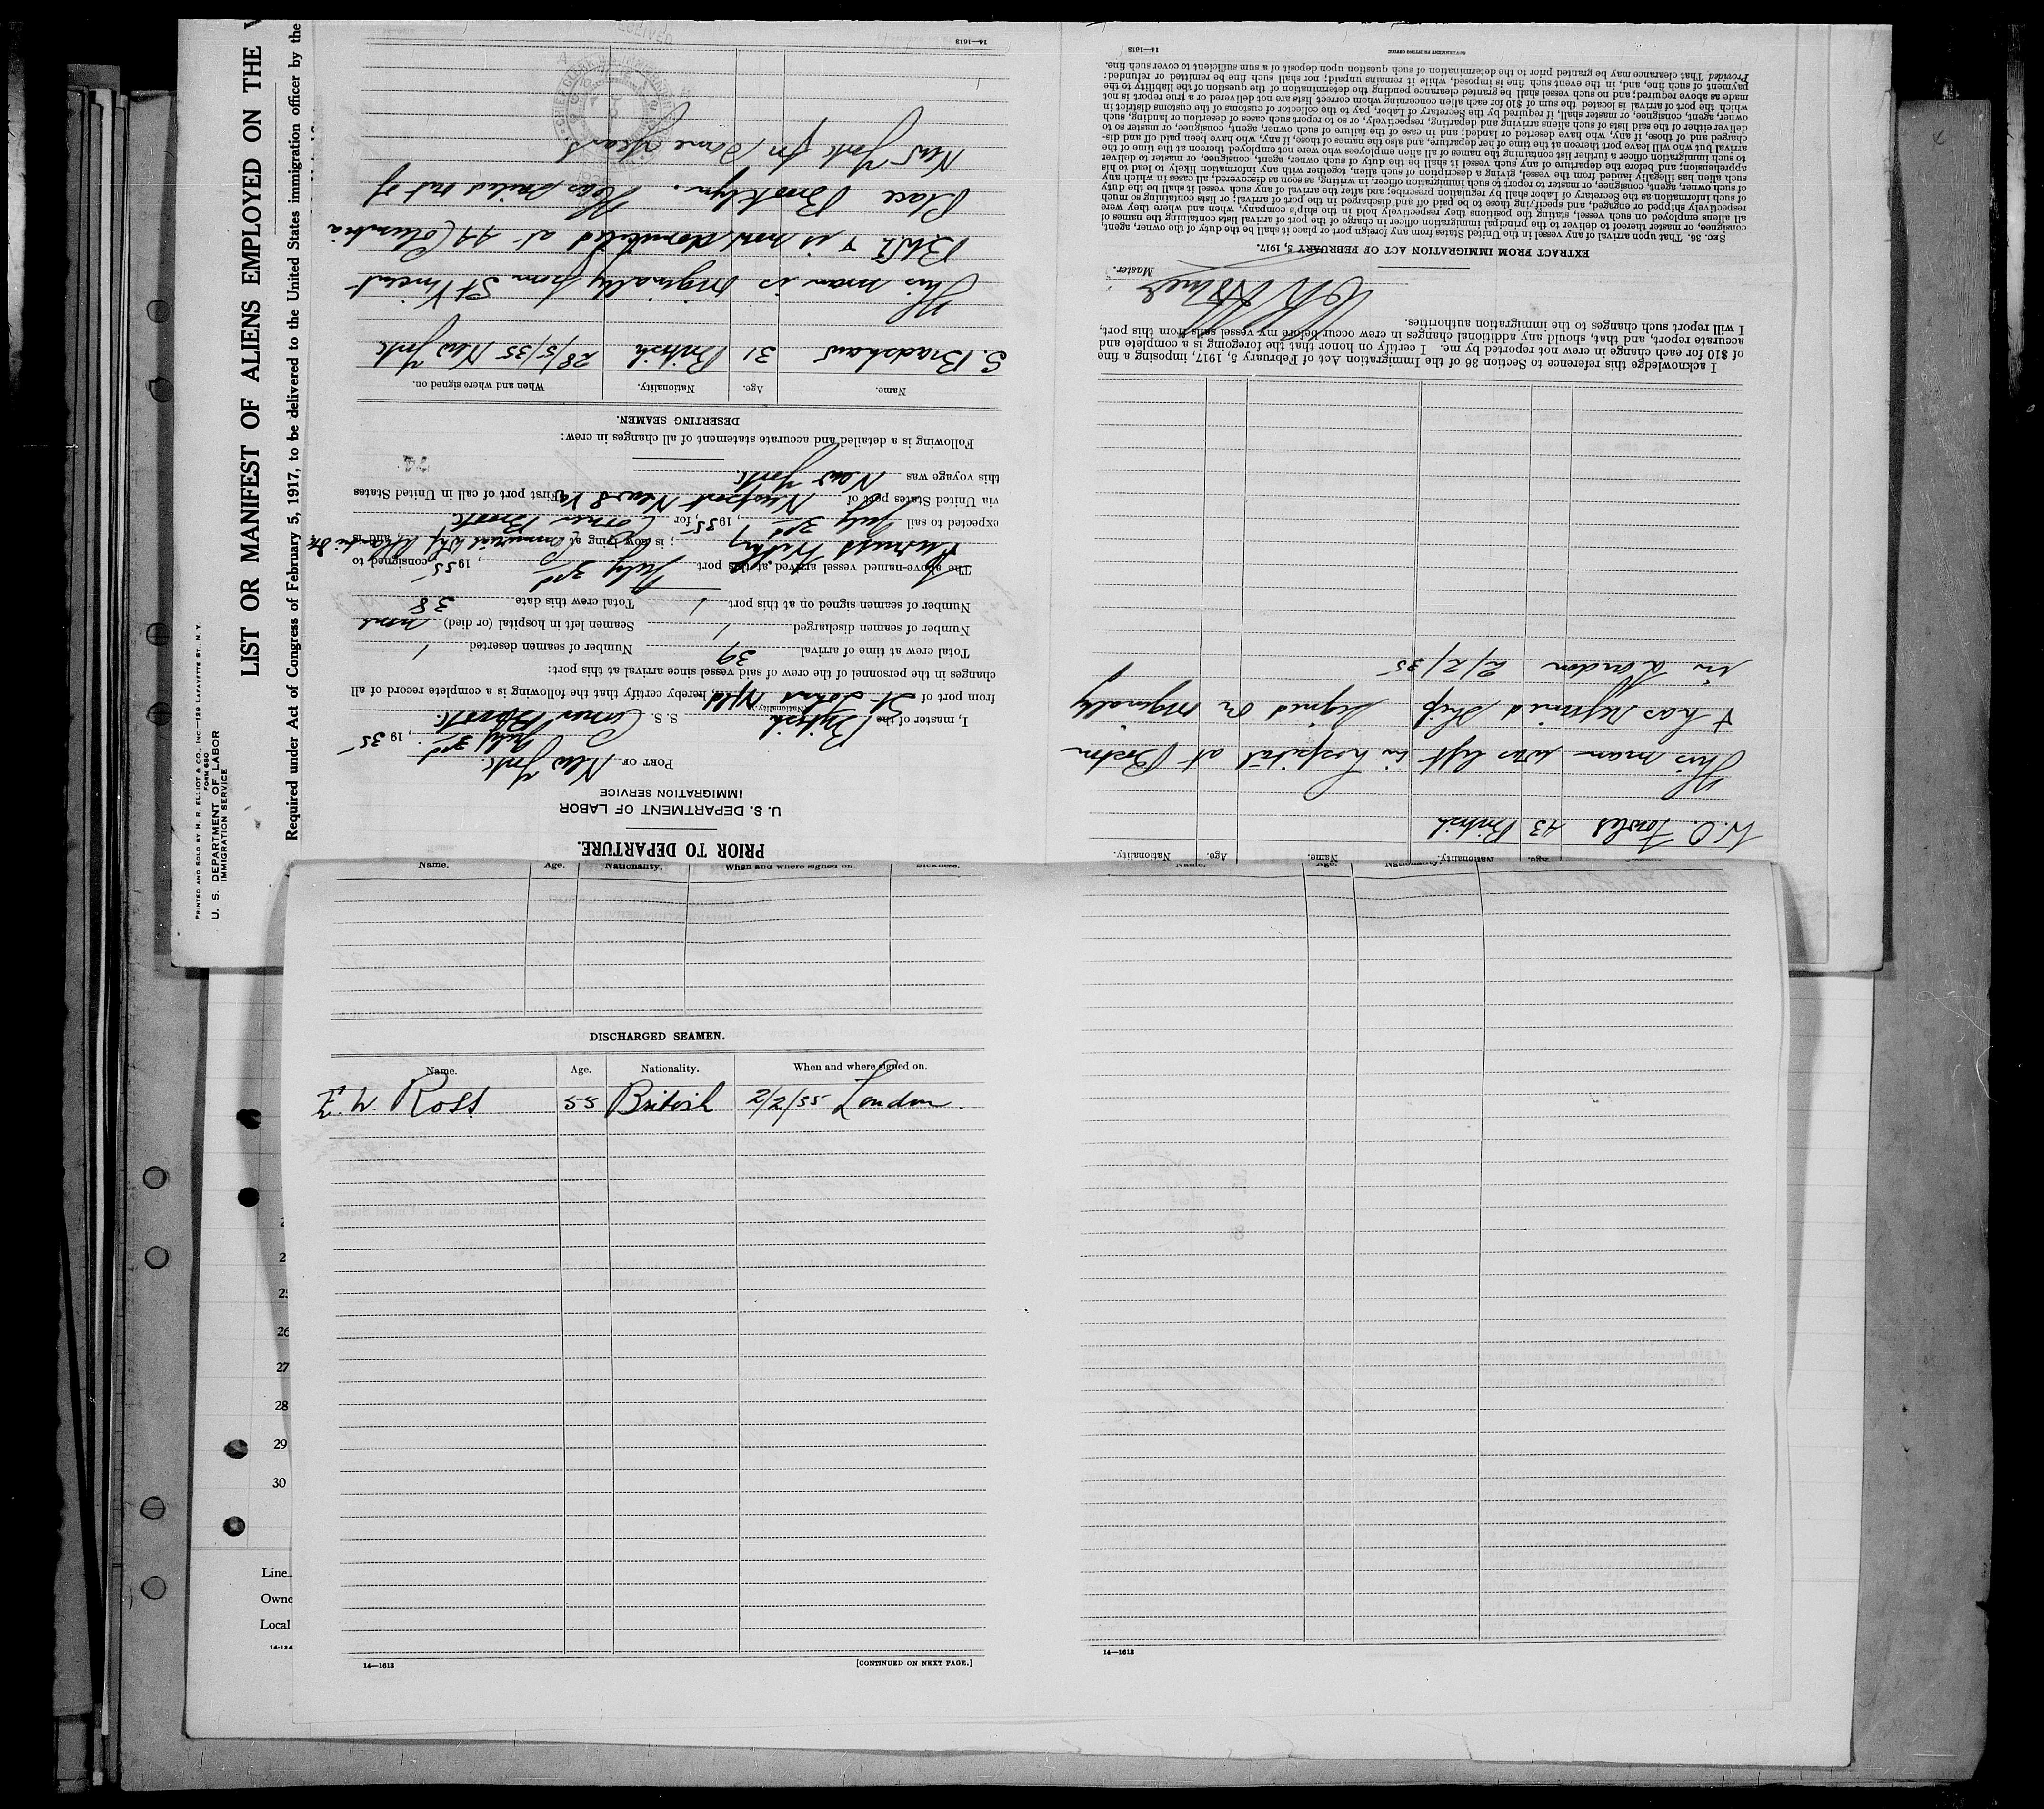 LIST OR MANIFEST OF ALIENS EMPLOYED ON THE
Required under Act of Congress of February 5, 1917, to be delivered to the United States immigration officer by the
PRINTED AND SOLD BY H. R. ELLIOT & CO., INC.—129 LAFAYETTE ST., N. Y.
FORM 680
U. S. DEPARTMENT OF LABOR
IMMIGRATION SERVICE
PRIOR TO DEPARTURE.
U. S. DEPARTMENT OF LABOR
IMMIGRATION SERVICE
PORT OF New York
July 3rd, 1935
I, master of the British S. S. Corner Brook
(Nationality.)
from port of St Johns Nfld, hereby certify that the following is a complete record of all
changes in the personnel of the crew of said vessel since arrival at this port:
Total crew at time of arrival 39 Number of seamen deserted 1
Number of seamen discharged 1 Seamen left in hospital (or died) none
Number of seamen signed on at this port 1 Total crew this date 38
The above-named vessel arrived at this port July 3rd, 1935, consigned to
Furness Withy; is now lying at Commercial Whf, and is
expected to sail July 3rd, 1935, for Corner Brook
via United States port of Newport News Va First port of call in United States
this voyage was New York
Following is a detailed and accurate statement of all changes in crew:
DESERTING SEAMEN.
Name. Age. Nationality. When and where signed on.
S. Bradshaw 31 British 28/5/35 New York
This man is originally from St Vincent
B.W.I. & is now domiciled at 44 Columbia
Place Brooklyn. Has sailed out of
New York for some years
14—1613
Name. Age. Nationality. Name. Age. Nationality.
W.O. Fowles 43 British
This man was left in hospital at Boston
& has rejoined ship signed on originally
in London 2/2/35
I acknowledge this reference to Section 36 of the Immigration Act of February 5, 1917, imposing a fine
of $10 for each change in crew not reported by me. I certify on honor that the foregoing is a complete and
accurate report, and that, should any additional changes in crew occur before my vessel sails from this port,
I will report such changes to the immigration authorities.
Master.
EXTRACT FROM IMMIGRATION ACT OF FEBRUARY 5, 1917.
SEC. 36. That upon arrival of any vessel in the United States from any foreign port or place it shall be the duty of the owner, agent,
consignee, or master thereof to deliver to the principal immigration officer in charge of the port of arrival lists containing the names of
all aliens employed on such vessel, stating the positions they respectively hold in the ship's company, when and where they were
respectively shipped or engaged, and specifying those to be paid off and discharged in the port of arrival; or lists containing so much
of such information as the Secretary of Labor shall by regulation prescribe; and after the arrival of any such vessel it shall be the duty
of such owner, agent, consignee, or master to report to such immigration officer, in writing, as soon as discovered, all cases in which any
such alien has illegally landed from the vessel, giving a description of such alien, together with any information likely to lead to his
apprehension; and before the departure of any such vessel it shall be the duty of such owner, agent, consignee, or master to deliver
to such immigration officer a further list containing the names of all alien employees who were not employed thereon at the time of the
arrival but who will leave port thereon at the time of her departure, and also the names of those, if any, who have been paid off and dis-
charged and of those, if any, who have deserted or landed; and in case of the failure of such owner, agent, consignee, or master so to
deliver either of the said lists of such aliens arriving and departing, respectively, or so to report such cases of desertion or landing, such
owner, agent, consignee, or master shall, if required by the Secretary of Labor, pay to the collector of customs of the customs district in
which the port of arrival is located the sum of $10 for each alien concerning whom correct lists are not delivered or a true report is not
made as above required; and no such vessel shall be granted clearance pending the determination of the question of the liability to the
payment of such fine, and, in the event such fine is imposed, while it remains unpaid; nor shall such fine be remitted or refunded:
Provided That clearance may be granted prior to the determination of such question upon deposit of a sum sufficient to cover such fine.
14—1613 GOVERNMENT PRINTING OFFICE
Name. Age. Nationality. When and where signed on. Sickness.
DISCHARGED SEAMEN.
Name. Age. Nationality. When and where signed on.
E. W. Ross 55 British 2/2/35 London.
14—1613 [CONTINUED ON NEXT PAGE.]
14—1613
26
27
28
29
30
Line
Owne
Local
14-124